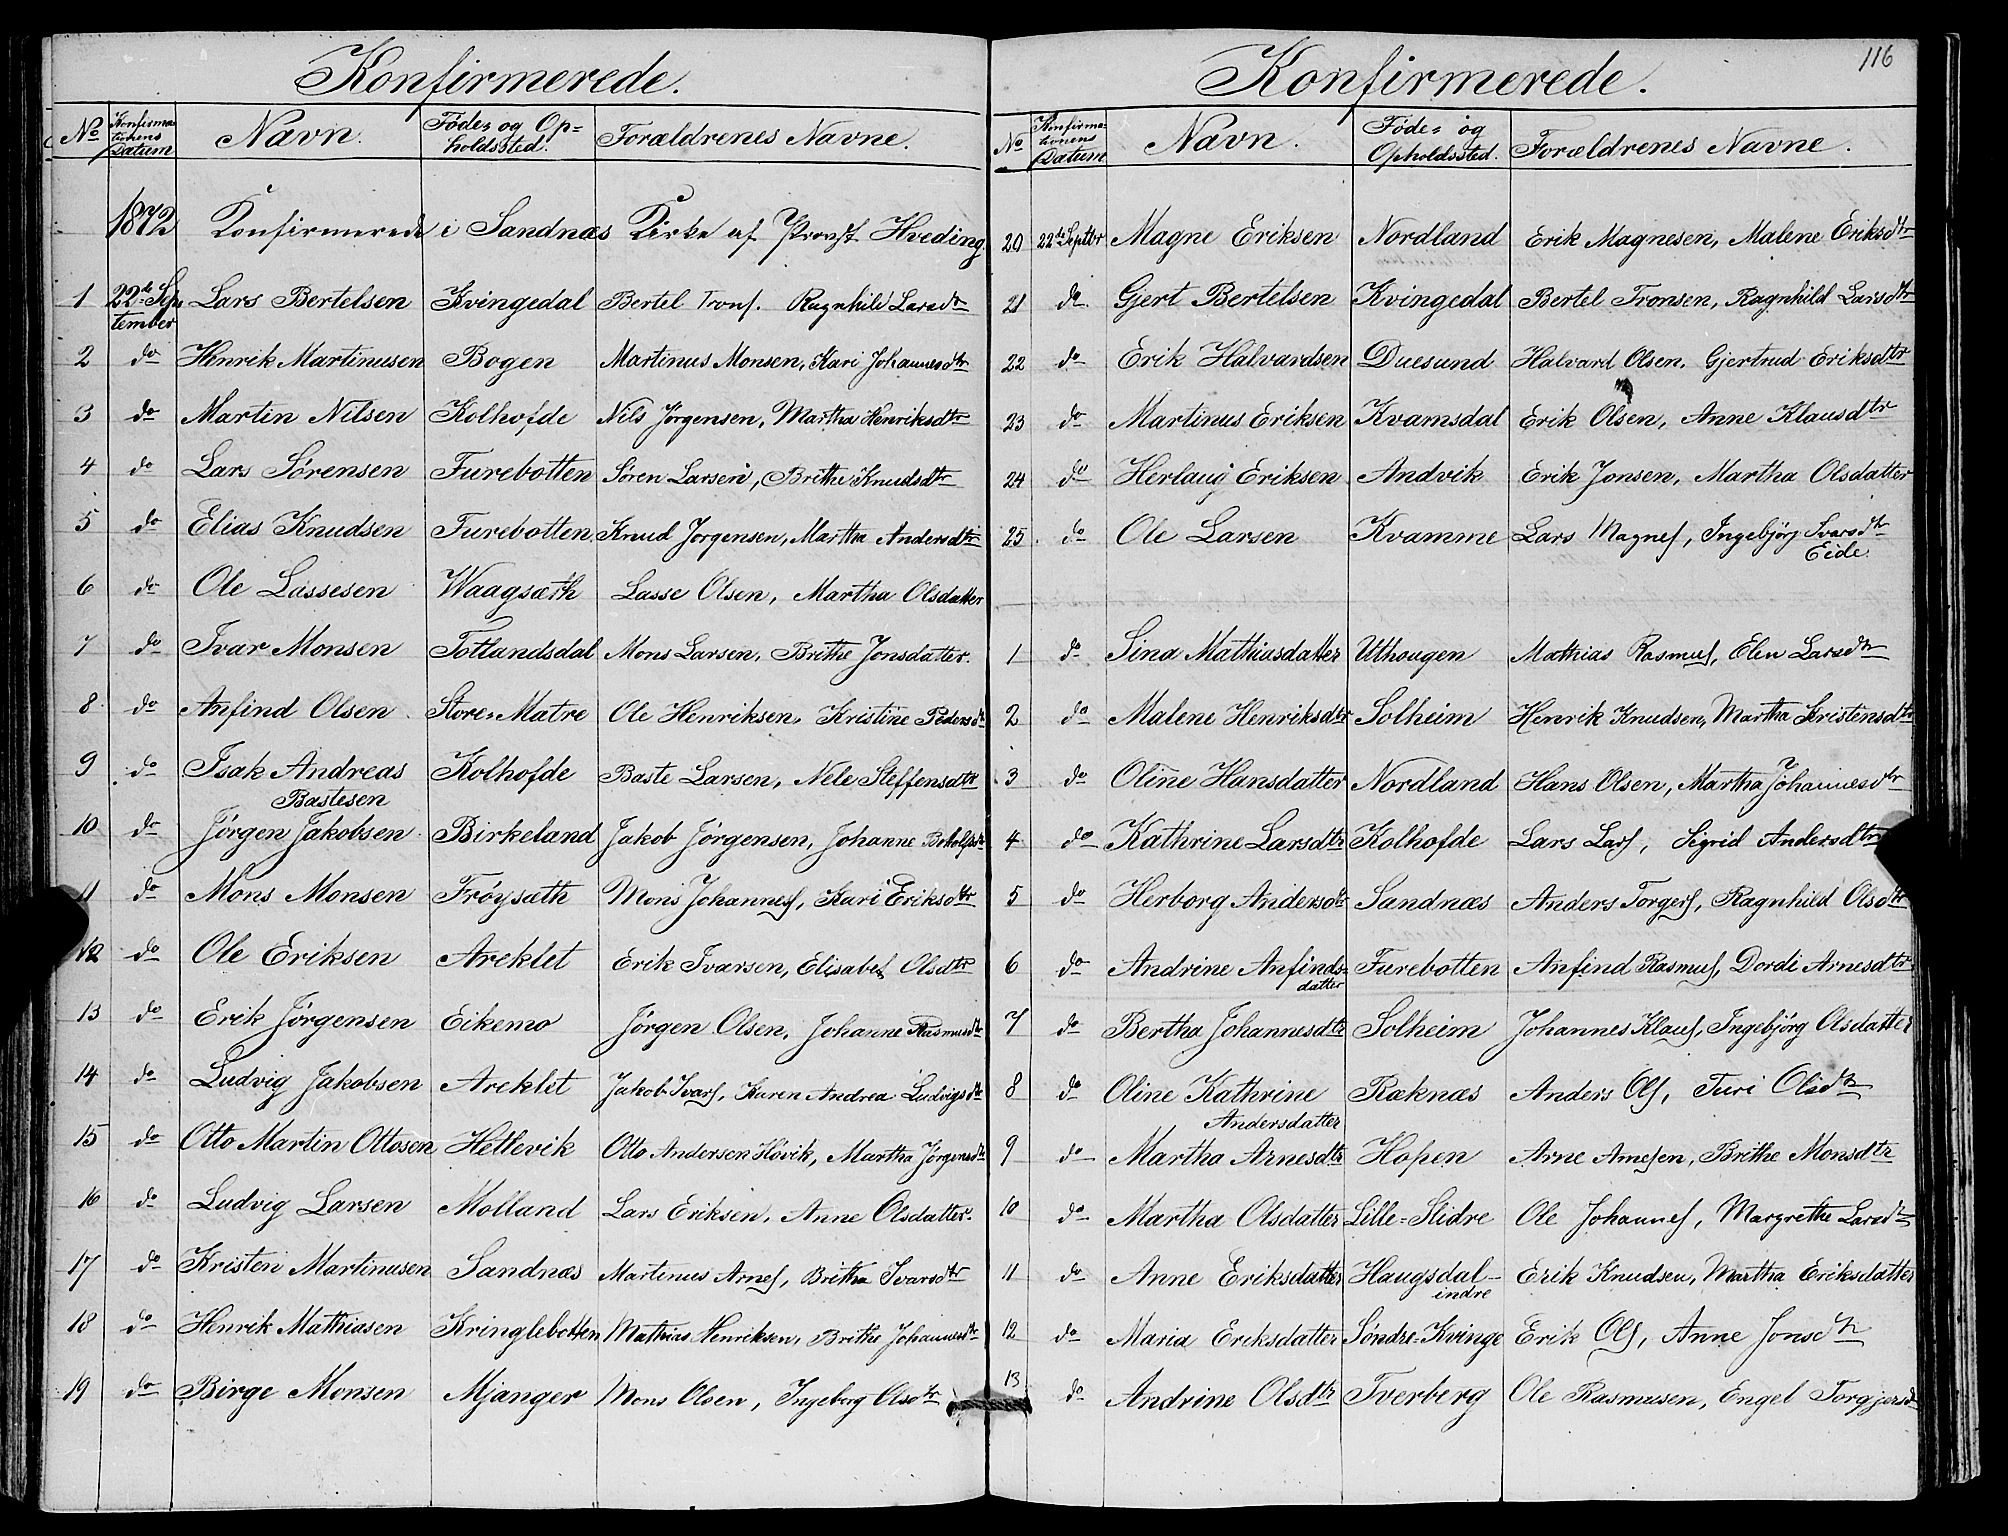 Konfirmerede.
No Konfirmationens Datum Navn. Føde= og Opholdssted. Forældrenes Navne.
1872 Konfirmerede i Sandnæs Kirke af Provst Hveding
1 22de September Lars Bertelsen Kvingedal Bertel Trons. Ragnhild Larsdtr
2 do Henrik Martinusen Bogen Martinus Monsen, Kari Johannesdtr
3 do Martin Nilsen Kolhofde Nils Jørgensen, Martha Henriksdtr
4 do Lars Sørensen Furebotten Søren Larsen, Brithe Knudsdtr
5 do Elias Knudsen Furebotten Knud Jørgensen, Martha Andersdtr
6 do Ole Lassesen Waagsæth Lasse Olsen, Martha Olsdatter
7 do Ivar Monsen Totlandsdal Mons Larsen, Brithe Jonsdatter.
8 do Anfind Olsen Store=Matre Ole Henriksen, Kristine Pedersdtr
9 do Isak Andreas Bastesen Kolhofde Baste Larsen, Nele Steffensdtr
10 do Jørgen Jakobsen Birkeland Jakob Jørgensen, Johanne Botolfsdtr
11 do Mons Monsen Frøysæth Mons Johannes, Kari Eriksdtr
12 do Ole Eriksen Areklet Erik Ivarsen, Elisabet Olsdtr
13 do Erik Jørgensen Eikemo Jørgen Olsen, Johanne Rasmusdtr
14 do Ludvig Jakobsen Areklet Jakob Ivars, Karen Andrea Ludvigsdtr
15 do Otto Martin Ottosen Hellevik Otto Andersen Høvik, Martha Jørgensdtr
16 do Ludvig Larsen Molland Lars Eriksen, Anne Olsdatter.
17 do Kristen Martinusen Sandnæs Martinus Arnes, Britha Ivarsdtr
18 do Henrik Mathiasen Kringlebotten Mathias Henriksen, Brithe Johannesdtr
19 do Birge Monsen Mjanger Mons Olsen, Ingeborg Olsdtr
116
Konfirmerede.
No Konfirmationens Datum Navn. Føde= og Opholdssted. Forældrenes Navne.
20 22de Septbr Magne Eriksen Nordland Erik Magnesen, Malene Eriksdtr
21 do Gjert Bertelsen Kvingedal Bertel Tronsen, Ragnhild Larsdtr
22 do Erik Halvardsen Duesund Halvard Olsen. Gjertrud Eriksdtr
23 do Martinus Eriksen Kvamsdal Erik Olsen, Anne Klausdtr
24 do Herlaug Eriksen Andvik Erik Jonsen, Martha Olsdatter
25. do Ole Larsen Kvamme Lars Magnes, Ingebjørg Ivarsdtr Eide
1 do Sina Mathiasdatter Uthougen Mathias Rasmus, Elen Larsdtr
2 do Malene Henriksdtr Solheim Henrik Knudsen, Martha Kristensdtr
3 do Oline Hansdatter Nordland Hans Olsen, Martha Johannesdtr
4 do Kathrine Larsdtr Kolhofde Lars Lars, Sigrid Andersdtr
5 do Herborg Andersdtr Sandnæs Anders Torgers, Ragnhild Olsdtr
6 do Andrine Anfindsdatter Furebotten Anfind Rasmus, Dordi Arnesdtr
7 do Bertha Johannesdtr Solheim Johannes Klaus, Ingebjørg Olsdatter
8 do Oline Kathrine Andersdatter Ræknæs Anders Ols, Turi Olsdtr
9 do Martha Arnesdtr Hopen Arne Arnesen, Brithe Monsdtr
10 do Martha Olsdatter Lille=Slidre Ole Johannes, Margrethe Larsdtr
11 do Anne Eriksdatter Haugsdal-indre Erik Knudsen, Martha Eriksdatter
12 do Maria Eriksdatter Søndre=Kvinge Erik Ols, Anne Jonsdtr
13 do Andrine Olsdtr Tverberg Ole Rasmusen, Engel Torgjersdtr